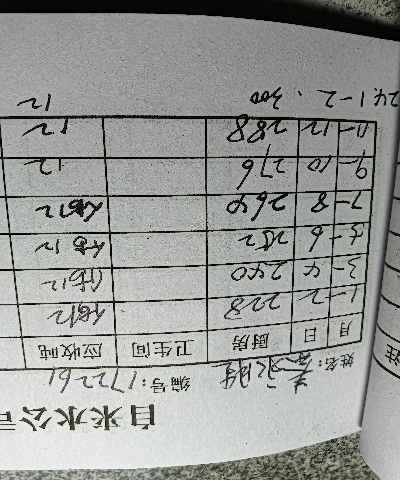 自来水公
姓名: 编号:172261
月 日 厨房 卫生间 应收吨
1-2 228 12
3-4 240 12
5-6 252 12
7-8 264 12
9-10 276 12
11-12 288 12
24.1-2. 300 12
注